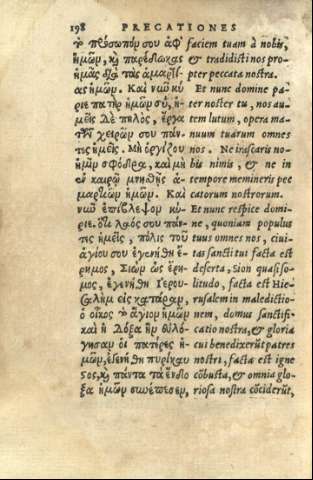 198 PRECATIONES
τὸ πρόσωπόν σου ἀφ᾽
ἡμῶν, καὶ παρέδωκας
ἡμᾶς διὰ τὰς ἁμαρτί-
ας ἡμῶν. Καὶ νῦν κύ-
ριε πατὴρ ἡμῶν σύ, ἡ-
μεῖς δὲ πηλὸς, ἔργα
τῶν χειρῶν σου πάν-
τες ἡμεῖς. Μὴ ὀργίζου
ἡμῖν σφόδρα, καὶ μὴ
ἐν καιρῷ μνησθῇς ἁ-
μαρτιῶν ἡμῶν. Καὶ
νῦν ἐπίβλεψον κύ-
ριε. ὅτι λαός σου πάν-
τες ἡμεῖς, πόλις τοῦ
ἁγίου σου ἐγενήθη ἔ-
ρημος, Σιὼν ὡς ἔρη-
μος, ἐγενήθη Ἱερου-
σαλὴμ εἰς κατάραν,
ὁ οἶκος τὸ ἅγιον ἡμῶν
καὶ ἡ δόξα ἣν εὐλό-
γησαν οἱ πατέρες ἡ-
μῶν, ἐγενήθη πυρίκαυ
στος, καὶ πάντα τὰ ἔνδο
ξα ἡμῶν συνέπεσεν,
faciem tuam à nobis,
& tradidisti nos pro-
pter peccata nostra.
Et nunc domine pa-
ter noster tu, nos au-
tem lutum, opera ma-
nuum tuarum omnes
nos. Ne irascaris no-
bis nimis, & ne in
tempore memineris pec
catorum nostrorum.
Et nunc respice domi-
ne, quoniam populus
tuus omnes nos, ciui-
tas sancti tui facta est
deserta, Sion quasi so-
litudo, facta est Hie-
rusalem in maledictio-
nem, domus sanctifi-
catio nostra, & gloria
cui benedixerūt patres
nostri, facta est igne
cōbusta, & omnia glo-
riosa nostra cōciderūt,